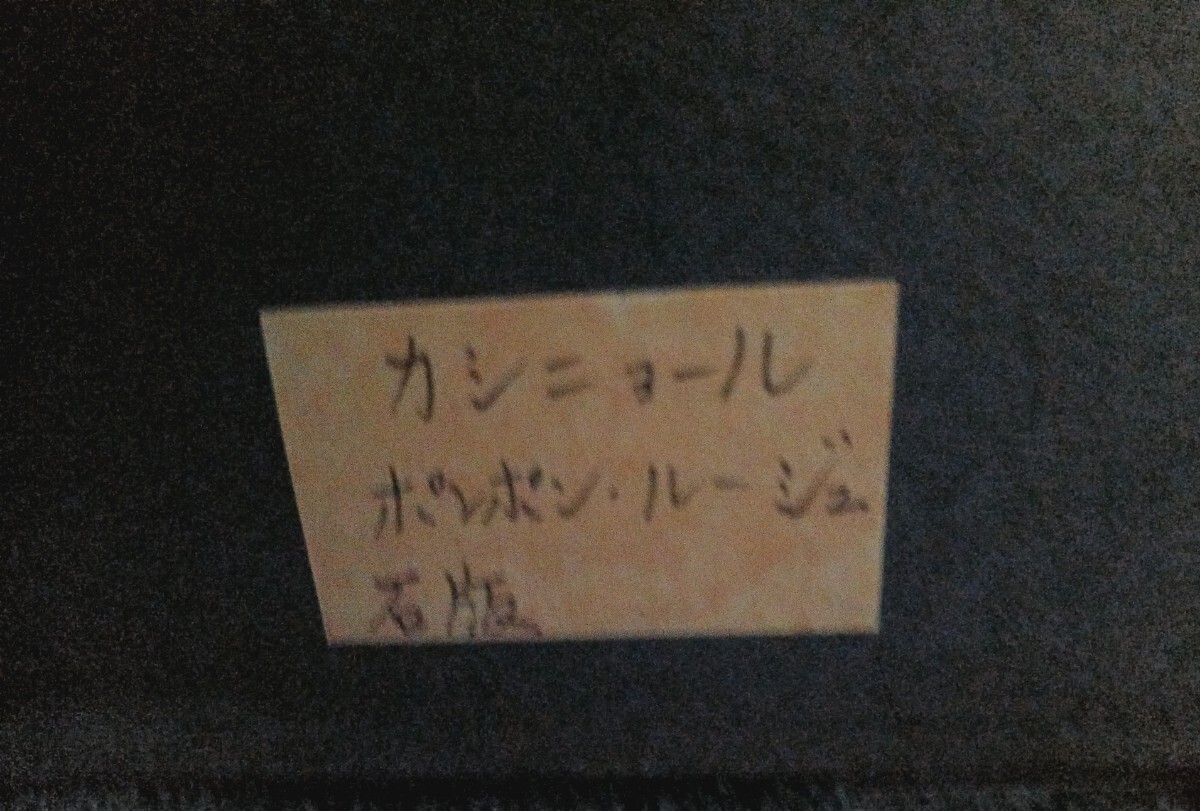 カシニョール
ポンポン・ルージュ
石版